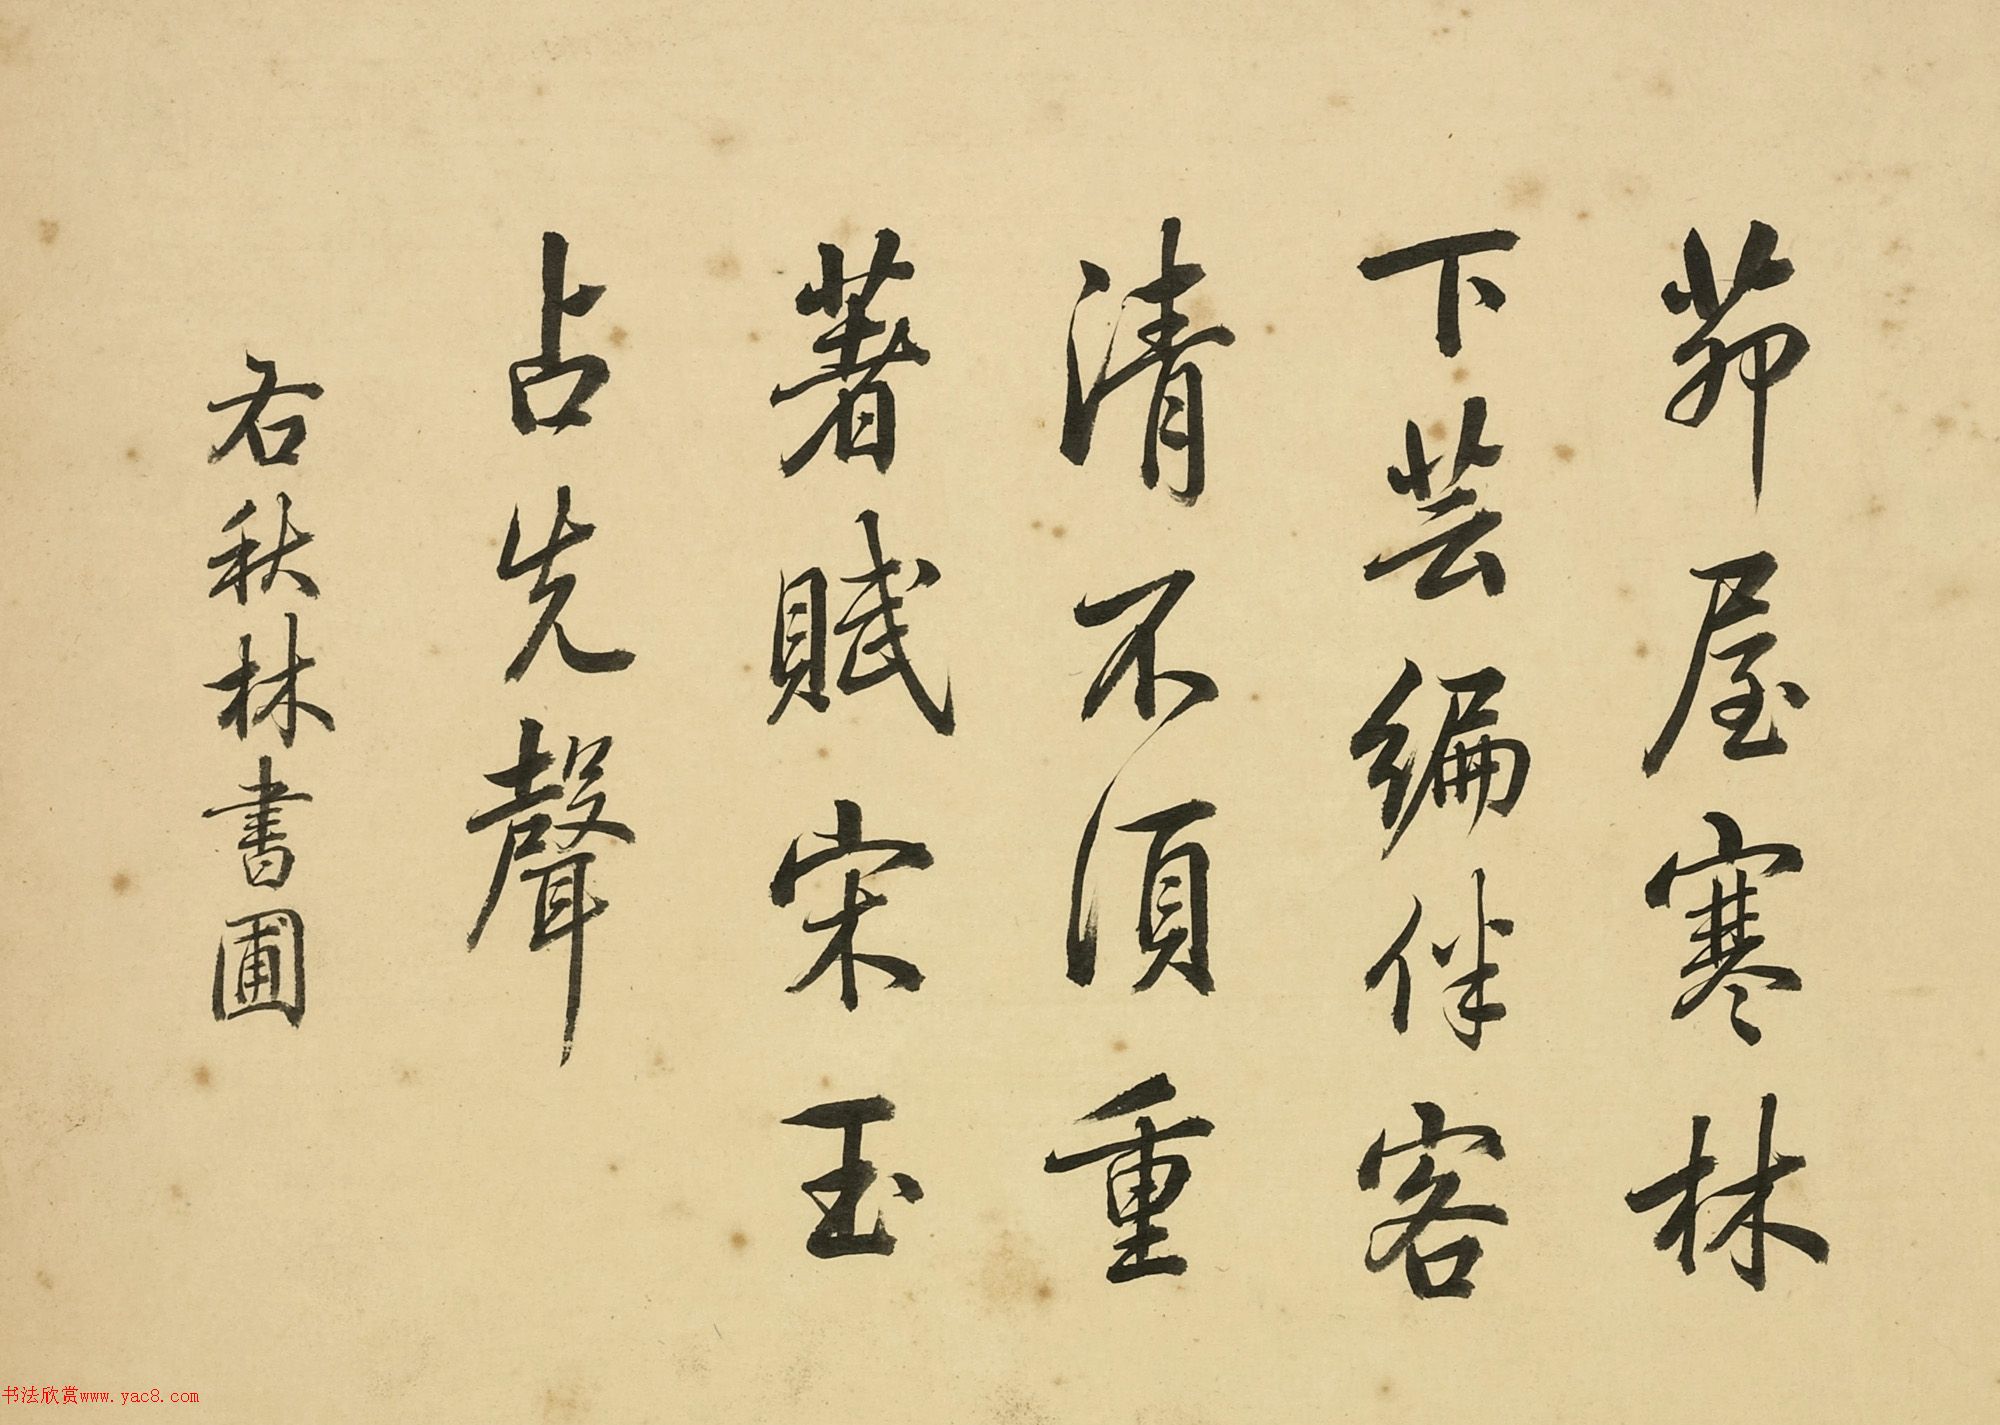 茆屋寒林
下芸編伴客
清不須重
著賦宋玉
占先聲
右秋林書圃
书法欣赏www.yac8.com